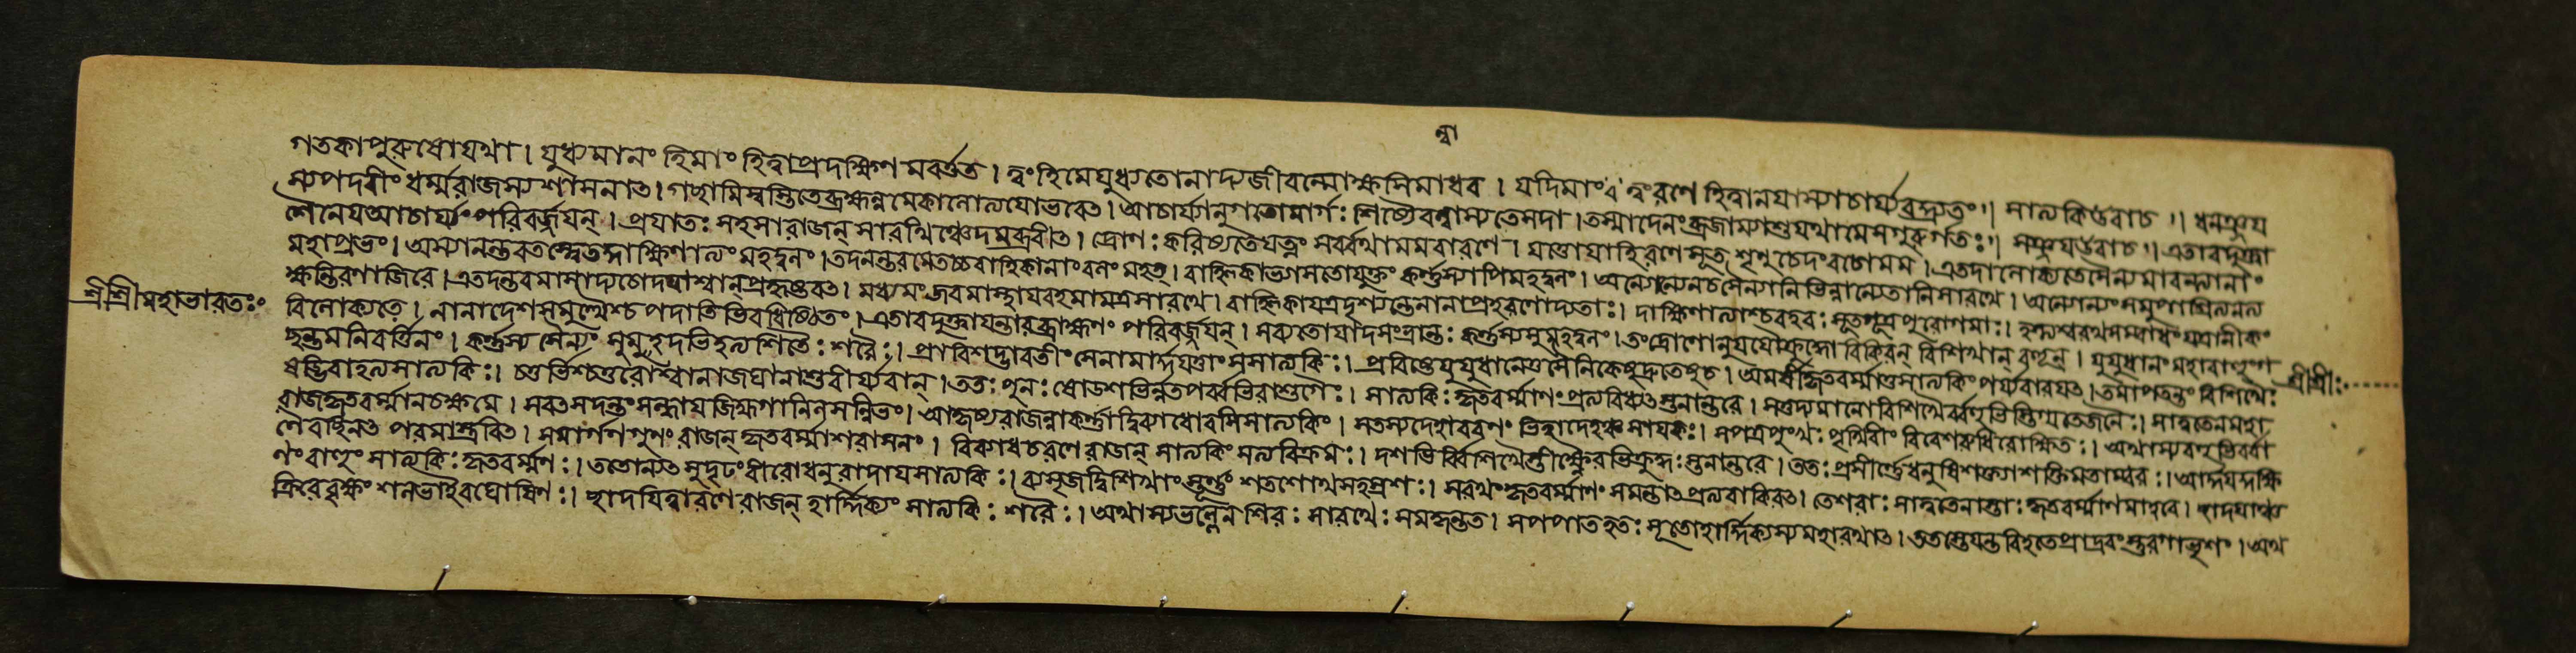 ন্বা
গতকাপুরুষোযথা। যুধ্যমানং হিমাং হিত্বাপ্রদক্ষিণ মবর্ত্তত। ত্বং হি মে যুধ্যতোনাদ্যজীবন্মোক্ষসিমাধব। যদিমাং ত্বং রণে হিত্বানযাস্যাচার্য্যবদ্দ্রুতং॥ সাত্যকিরুবাচ॥ ধনঞ্জয
স্যপদবীং ধর্ম্মরাজস্যশাসনাৎ। গচ্ছামিস্বস্তিতেব্রহ্মন্নমেকালাত্যযোভবেৎ। আচার্য্যানুগতোমার্গঃ শিষ্যৈরন্বাস্যতেসদা। তস্মাদেনংব্রজাম্যাশুযথামেসগুরুর্গতঃ॥ সঞ্জযউবাচ॥ এতাবদুক্ত্বা
শৈনেযআচার্য্যংপরিবর্জ্জযন্। প্রযাতঃ সহসারাজন্ সারথিঞ্চেদমব্রবীৎ। দ্রোণঃ করিষ্যতেযত্নং সর্ব্বথামমবারণে। যত্তোযাহিরণেসূত শৃণুচেদংবচোমম। এতদালোক্যতেসৈন্যমাবন্ত্যানাং
মহাপ্রভং। অস্যানন্তরতস্ত্বেতদ্দাক্ষিণাত্যং মহদ্বলং। তদনন্তরমেতচ্চবাহ্লিকানাংবলং মহত্। বাহ্লিকাভ্যাসতোযুক্তং কর্ণস্যাপিমহদ্বলং। অন্যোন্যেনচসৈন্যানিভিন্নান্যেতানিসারথে। অন্যোন্যংসমুপাশ্রিত্যনত্য
ক্ষ্যন্তিরণাজিরে। এতদন্তরমাসাদ্যচোদযাশ্বান্প্রহৃষ্টবৎ। মধ্যমংজবমাস্থাযবহমামত্রসারথে। বাহ্লিকাযত্রদৃশ্যন্তেনানাপ্রহরণোদ্যতাঃ। দাক্ষিণাত্যাশ্চবহবঃ সূতপুত্রপুরোগমাঃ। হস্ত্যশ্বরথসম্বাধংযত্রানীকং
শ্রীশ্রীমহাভারতঃ
বিলোক্যতে। নানাদেশসমুত্থৈশ্চ পদাতিভিরধিষ্ঠিতং। এতাবদুক্ত্বাযন্তারংব্রাহ্মণং পরিবর্জ্জযন্। সব্যতোযাদসংভ্রান্তঃ কর্ণস্যসুমহদ্বলং। তংদ্রোণোনুযযৌক্রুদ্ধোবিকিরন্ বিশিখান্ বহূন্। যুযুধানং মহাবাহুংগ
শ্রীশ্রীঃ
চ্ছন্তমনিবর্ত্তিনং। কর্ণস্য সৈন্যং সুমহদভিহত্যশিতৈঃ শরৈঃ। প্রাবিশদ্ভারতীংসেনামার্দ্দযত্তাংসসাত্যকিঃ। প্রবিষ্টেযুযুধানেতুসৈনিকেষুদ্রুতেষুচ। অমর্ষীকৃতবর্ম্মাতুসাত্যকিং পর্য্যবারযৎ। তমাপতন্তং বিশিখৈঃ
ষড্ভিরাহত্যসাত্যকিঃ। চতুর্ভিশ্চতুরোশ্বানাজঘানাশুবীর্য্যবান্। ততঃ পুনঃ ষোডশভির্নতপর্ব্বভিরাশুগৈঃ। সাত্যকিঃ কৃতবর্ম্মাণং প্রত্যবিধ্যৎস্তনান্তরে। সতুদ্যমানোবিশিখৈর্বহুভিস্তিগ্মতেজনৈঃ। সাত্বতেনমহা
রাজকৃতবর্ম্মানচক্ষমে। সবৎসদন্তংসন্ধাযজিহ্মগানিলসন্নিভং। আকৃষ্যরাজন্নাকর্ণাদ্বিব্যাধোরসিসাত্যকিং। সতস্যদেহাবরণং ভিত্বাদেহঞ্চসাযকঃ। সপত্রপুংখঃ পৃথিবীং বিবেশরুধিরোক্ষিতঃ। অথাস্যবহুভির্বা
ণৈরচ্ছিনৎ পরমাস্ত্রবিৎ। সমার্গণগুণং রাজন্ কৃতবর্ম্মাশরাসনং। বিব্যাধচরণে রাজন্ সাত্যকিং সত্যবিক্রমঃ। দশভির্বিশিখৈস্তীক্ষ্ণৈরভিক্রুদ্ধঃস্তনান্তরে। ততঃ প্রশীর্ণেধনুষিশক্ত্যাশক্তিমতাম্বরঃ। আর্দ্দযদ্দক্ষি
ণং বাহুং সাত্যকিঃ কৃতবর্ম্মণঃ। ততোন্যৎসুদৃঢংধীরোধনুরাদাযসাত্যকিঃ। ব্যসৃজদ্বিশিখাংস্তূর্ণং শতশোথসহস্রশঃ। সরথং কৃতবর্ম্মাণং সমন্তাৎপ্রত্যবাকিরৎ। তেশরাঃ সাত্বতেনাস্তাঃ কৃতবর্ম্মাণমাহবে। ছাদযাঞ্চ
ক্রিরেবৃক্ষং শলভাইবঘোষিণঃ। ছাদযিত্বারণেরাজন্ হার্দ্দিক্যং সাত্যকিঃ শরৈঃ। অথাস্যভল্লেনশিরঃ সারথেঃ সমকৃন্তত। সপপাতহতঃ সূতোহার্দ্দিক্যস্যমহারথাৎ। ততস্তেযন্তরিহতেপ্রাদ্রবংস্তুরগাভৃশং। অথ